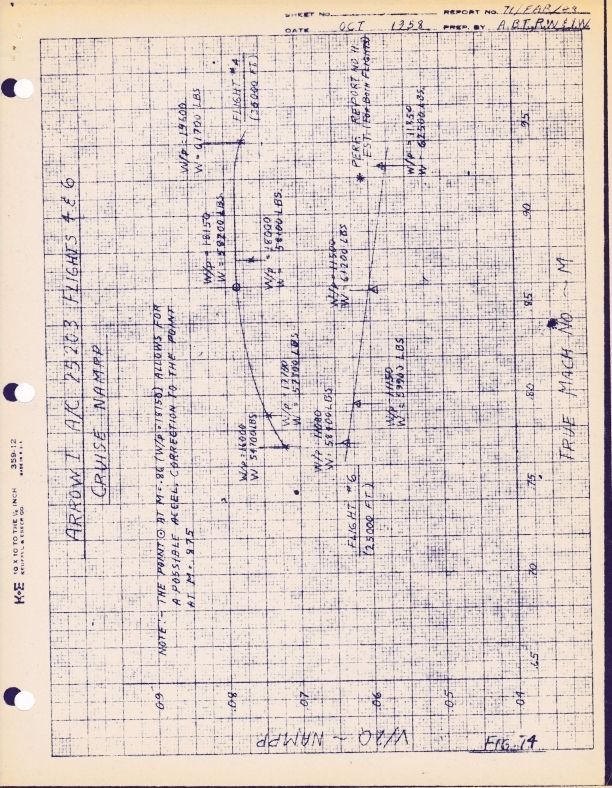 SHEET NO.
REPORT NO. 71/FAR/48
DATE OCT 1958
PREP. BY A.B.T, P.W & I.W.
ARROW I A/C 25203 FLIGHTS 4 & 6
CRUISE NAMPP
NOTE:- THE POINT ⊙ AT M=.86 (W/p=18150) ALLOWS FOR
A POSSIBLE ACCEL. CORRECTION TO THE POINT
AT M=.875
W/p=19600
W=61700 LBS
FLIGHT #4
W/p=18150
W=58200 LBS
W/p=18000
W=58100 LBS.
W/p=17780
W=57700 LBS.
W/p=16000
W=54700LBS
* PERF. REPORT NO 11
EST. (For Both Flights)
W/p=11850
W=62500LBS.
W/p=11500
W=61200 LBS
W/p=11150
W=59900 LBS
W/p=11080
W=58400LBS
FLIGHT #6
(25000 FT)
V/2Q ~ NAMPP
.09
.08
.07
.06
.05
.04
.65
.70
.75
.80
.85
.90
.95
TRUE MACH NO ~ M
FIG. 74
K+E 10 X 10 TO THE ½ INCH 359-12
KEUFFEL & ESSER CO.